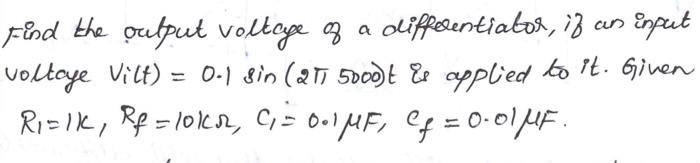 Find the output voltage of a differentiator, if an input
voltage Vi(t) = 0.1 sin (2π 5000)t is applied to it. Given
R₁=1K, Rf=10KΩ, C₁= 0.1μF, Cf = 0.01μF.